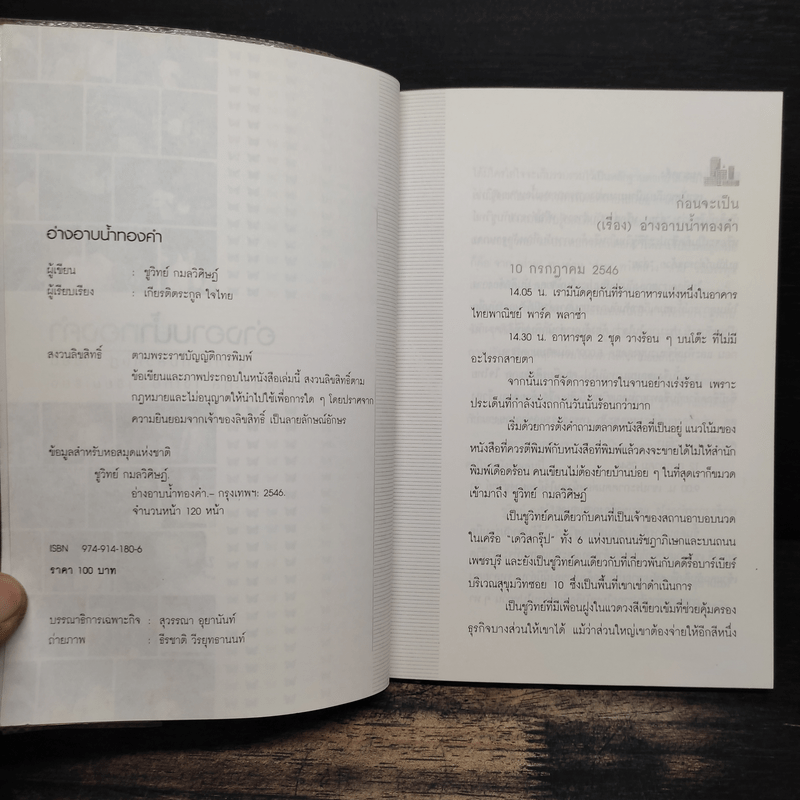 อ่างอาบน้ำทองคำ
ผู้เขียน : ชูวิทย์ กมลวิศิษฎ์
ผู้เรียบเรียง : เกียรติตระกูล ใจไทย
สงวนลิขสิทธิ์ ตามพระราชบัญญัติการพิมพ์
ข้อเขียนและภาพประกอบในหนังสือเล่มนี้ สงวนลิขสิทธิ์ตาม
กฎหมายและไม่อนุญาตให้นำไปใช้เพื่อการใด ๆ โดยปราศจาก
ความยินยอมจากเจ้าของลิขสิทธิ์ เป็นลายลักษณ์อักษร
ข้อมูลสำหรับหอสมุดแห่งชาติ
ชูวิทย์ กมลวิศิษฎ์.
อ่างอาบน้ำทองคำ.– กรุงเทพฯ: 2546.
จำนวนหน้า 120 หน้า
ISBN 974-914-180-6
ราคา 100 บาท
บรรณาธิการเฉพาะกิจ : สุวรรณา อุยานันท์
ถ่ายภาพ : ธีรชาติ วีรยุทธานนท์
ก่อนจะเป็น
(เรื่อง) อ่างอาบน้ำทองคำ
10 กรกฎาคม 2546
14.05 น. เรามีนัดคุยกันที่ร้านอาหารแห่งหนึ่งในอาคาร
ไทยพาณิชย์ พาร์ค พลาซ่า
14.30 น. อาหารชุด 2 ชุด วางร้อน ๆ บนโต๊ะ ที่ไม่มี
อะไรรกสายตา
จากนั้นเราก็จัดการอาหารในจานอย่างเร่งร้อน เพราะ
ประเด็นที่กำลังนั่งถกกันวันนั้นร้อนกว่ามาก
เริ่มด้วยการตั้งคำถามตลาดหนังสือที่เป็นอยู่ แนวโน้มของ
หนังสือที่ควรตีพิมพ์กับหนังสือที่พิมพ์แล้วคงจะขายได้ไม่ให้สำนัก
พิมพ์เดือดร้อน คนเขียนไม่ต้องย้ายบ้านบ่อย ๆ ในที่สุดเราก็ขมวด
เข้ามาถึง ชูวิทย์ กมลวิศิษฎ์
เป็นชูวิทย์คนเดียวกับคนที่เป็นเจ้าของสถานอาบอบนวด
ในเครือ “เดวิสกรุ๊ป” ทั้ง 6 แห่งบนถนนรัชฎาภิเษกและบนถนน
เพชรบุรี และยังเป็นชูวิทย์คนเดียวกับที่เกี่ยวพันกับคดีรื้อบาร์เบียร์
บริเวณสุขุมวิทซอย 10 ซึ่งเป็นพื้นที่เขาเช่าดำเนินการ
เป็นชูวิทย์ที่มีเพื่อนฝูงในแวดวงสีเขียวเข้มที่ช่วยคุ้มครอง
ธุรกิจบางส่วนให้เขาได้ แม้ว่าส่วนใหญ่เขาต้องจ่ายให้อีกสีหนึ่ง